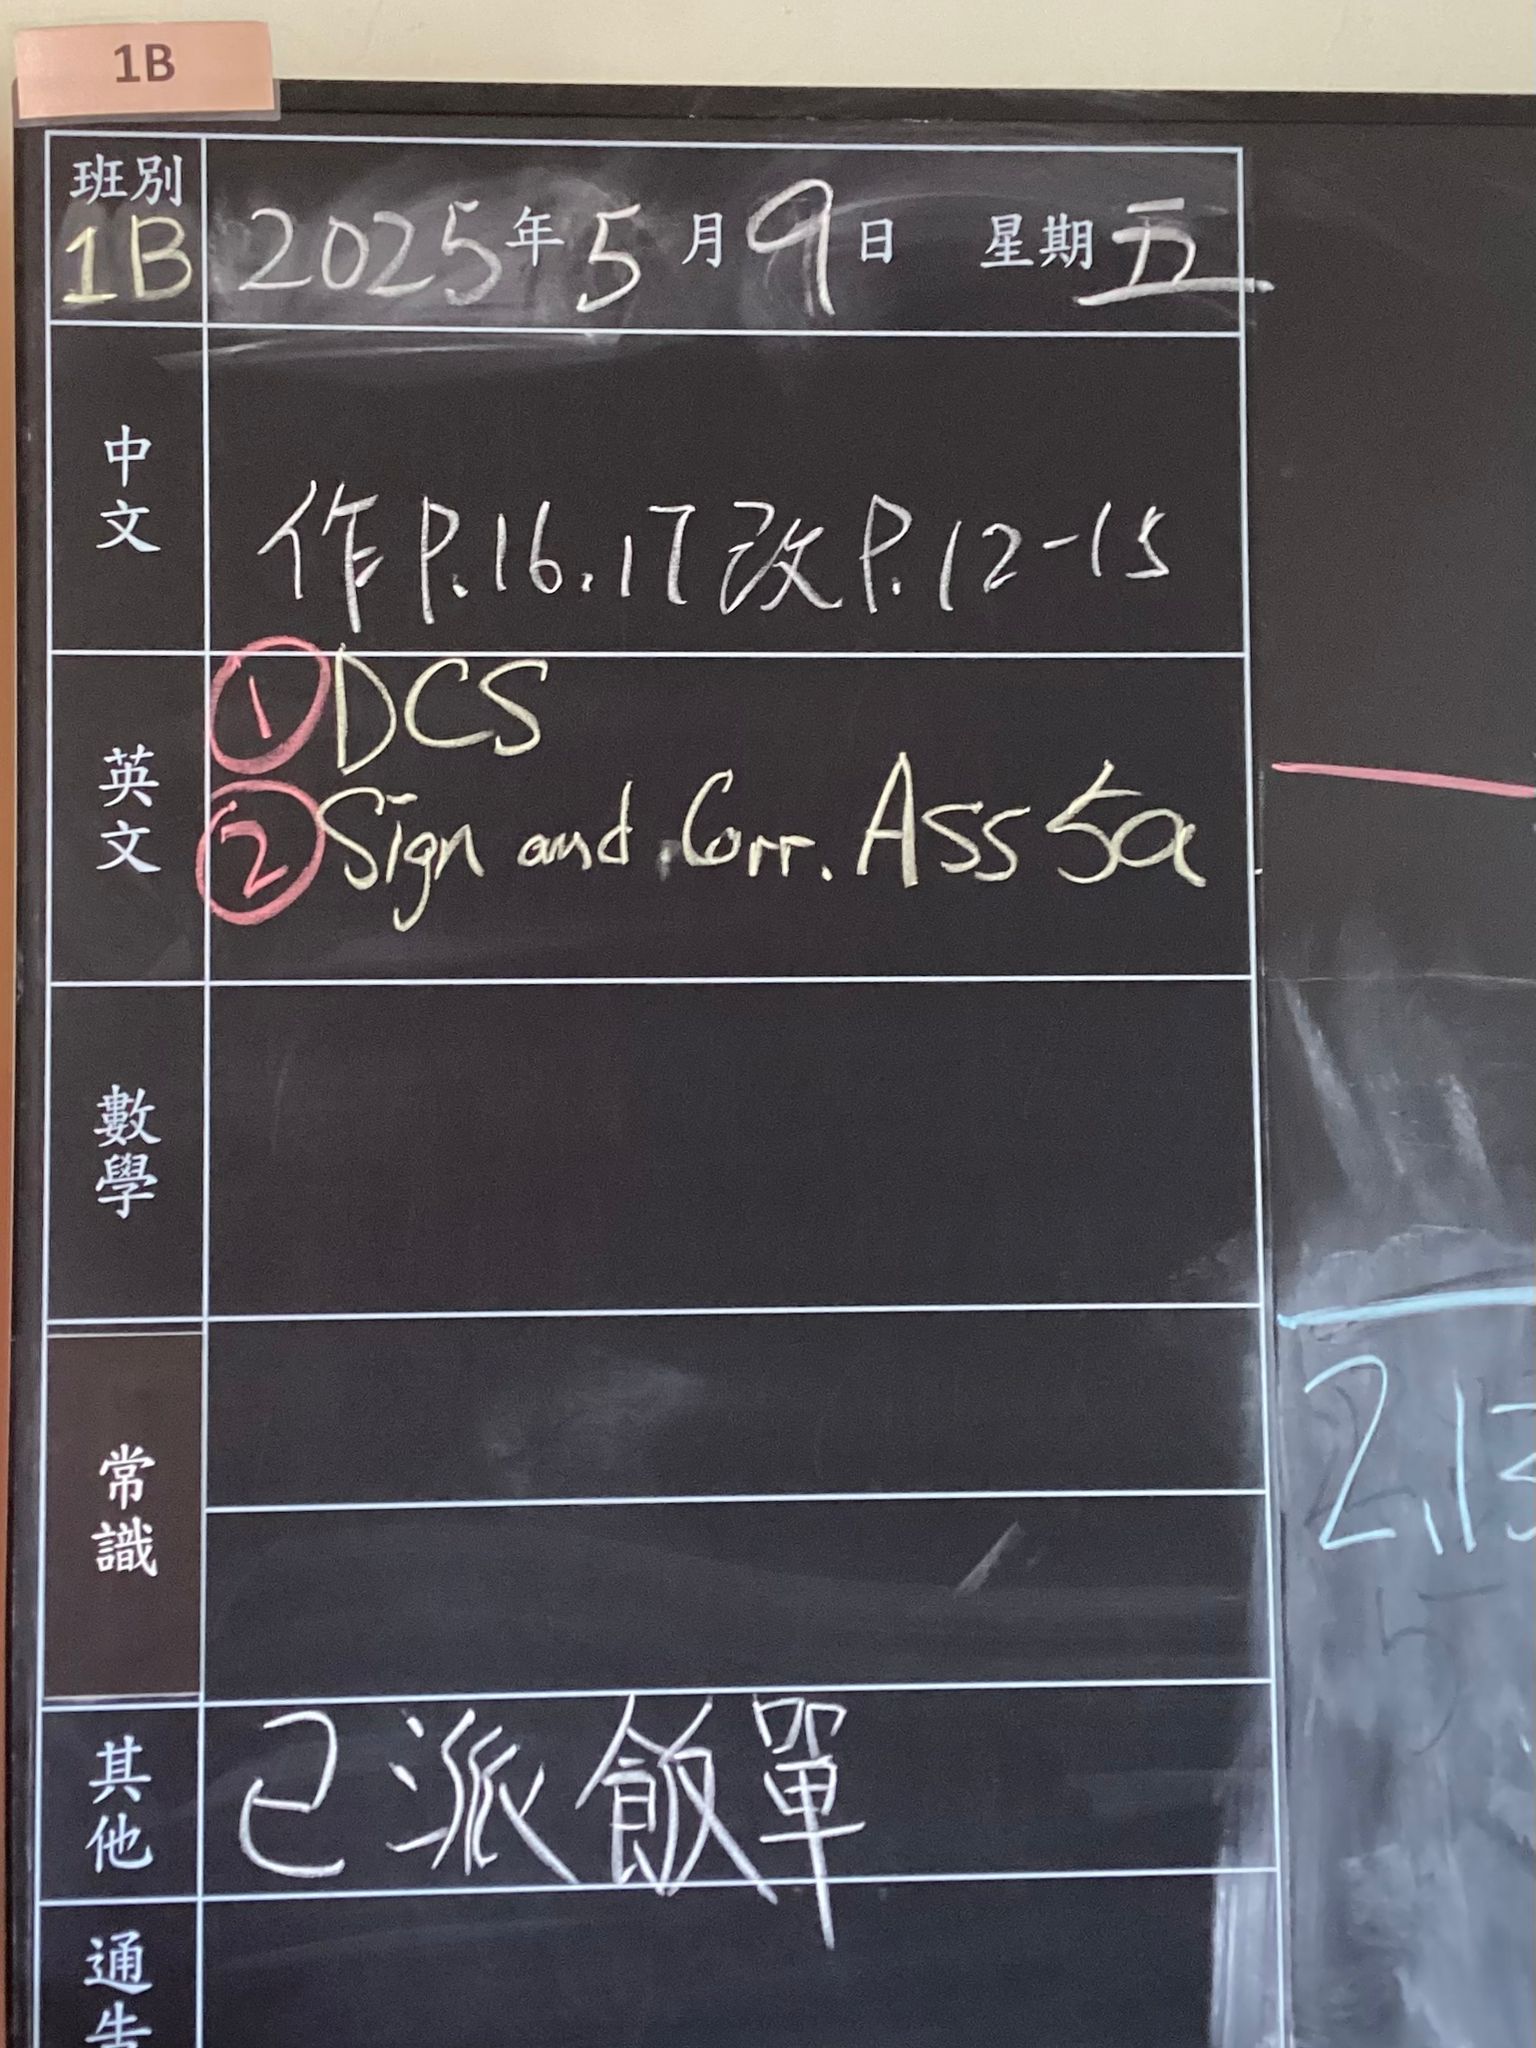 1B
班別
1B
2025年5月9日 星期五
中文
作P.16.17改P.12-15
英文
① DCS
② Sign and Corr. Ass 5a
數學
常識
2,13
其他
已派飯單
通告